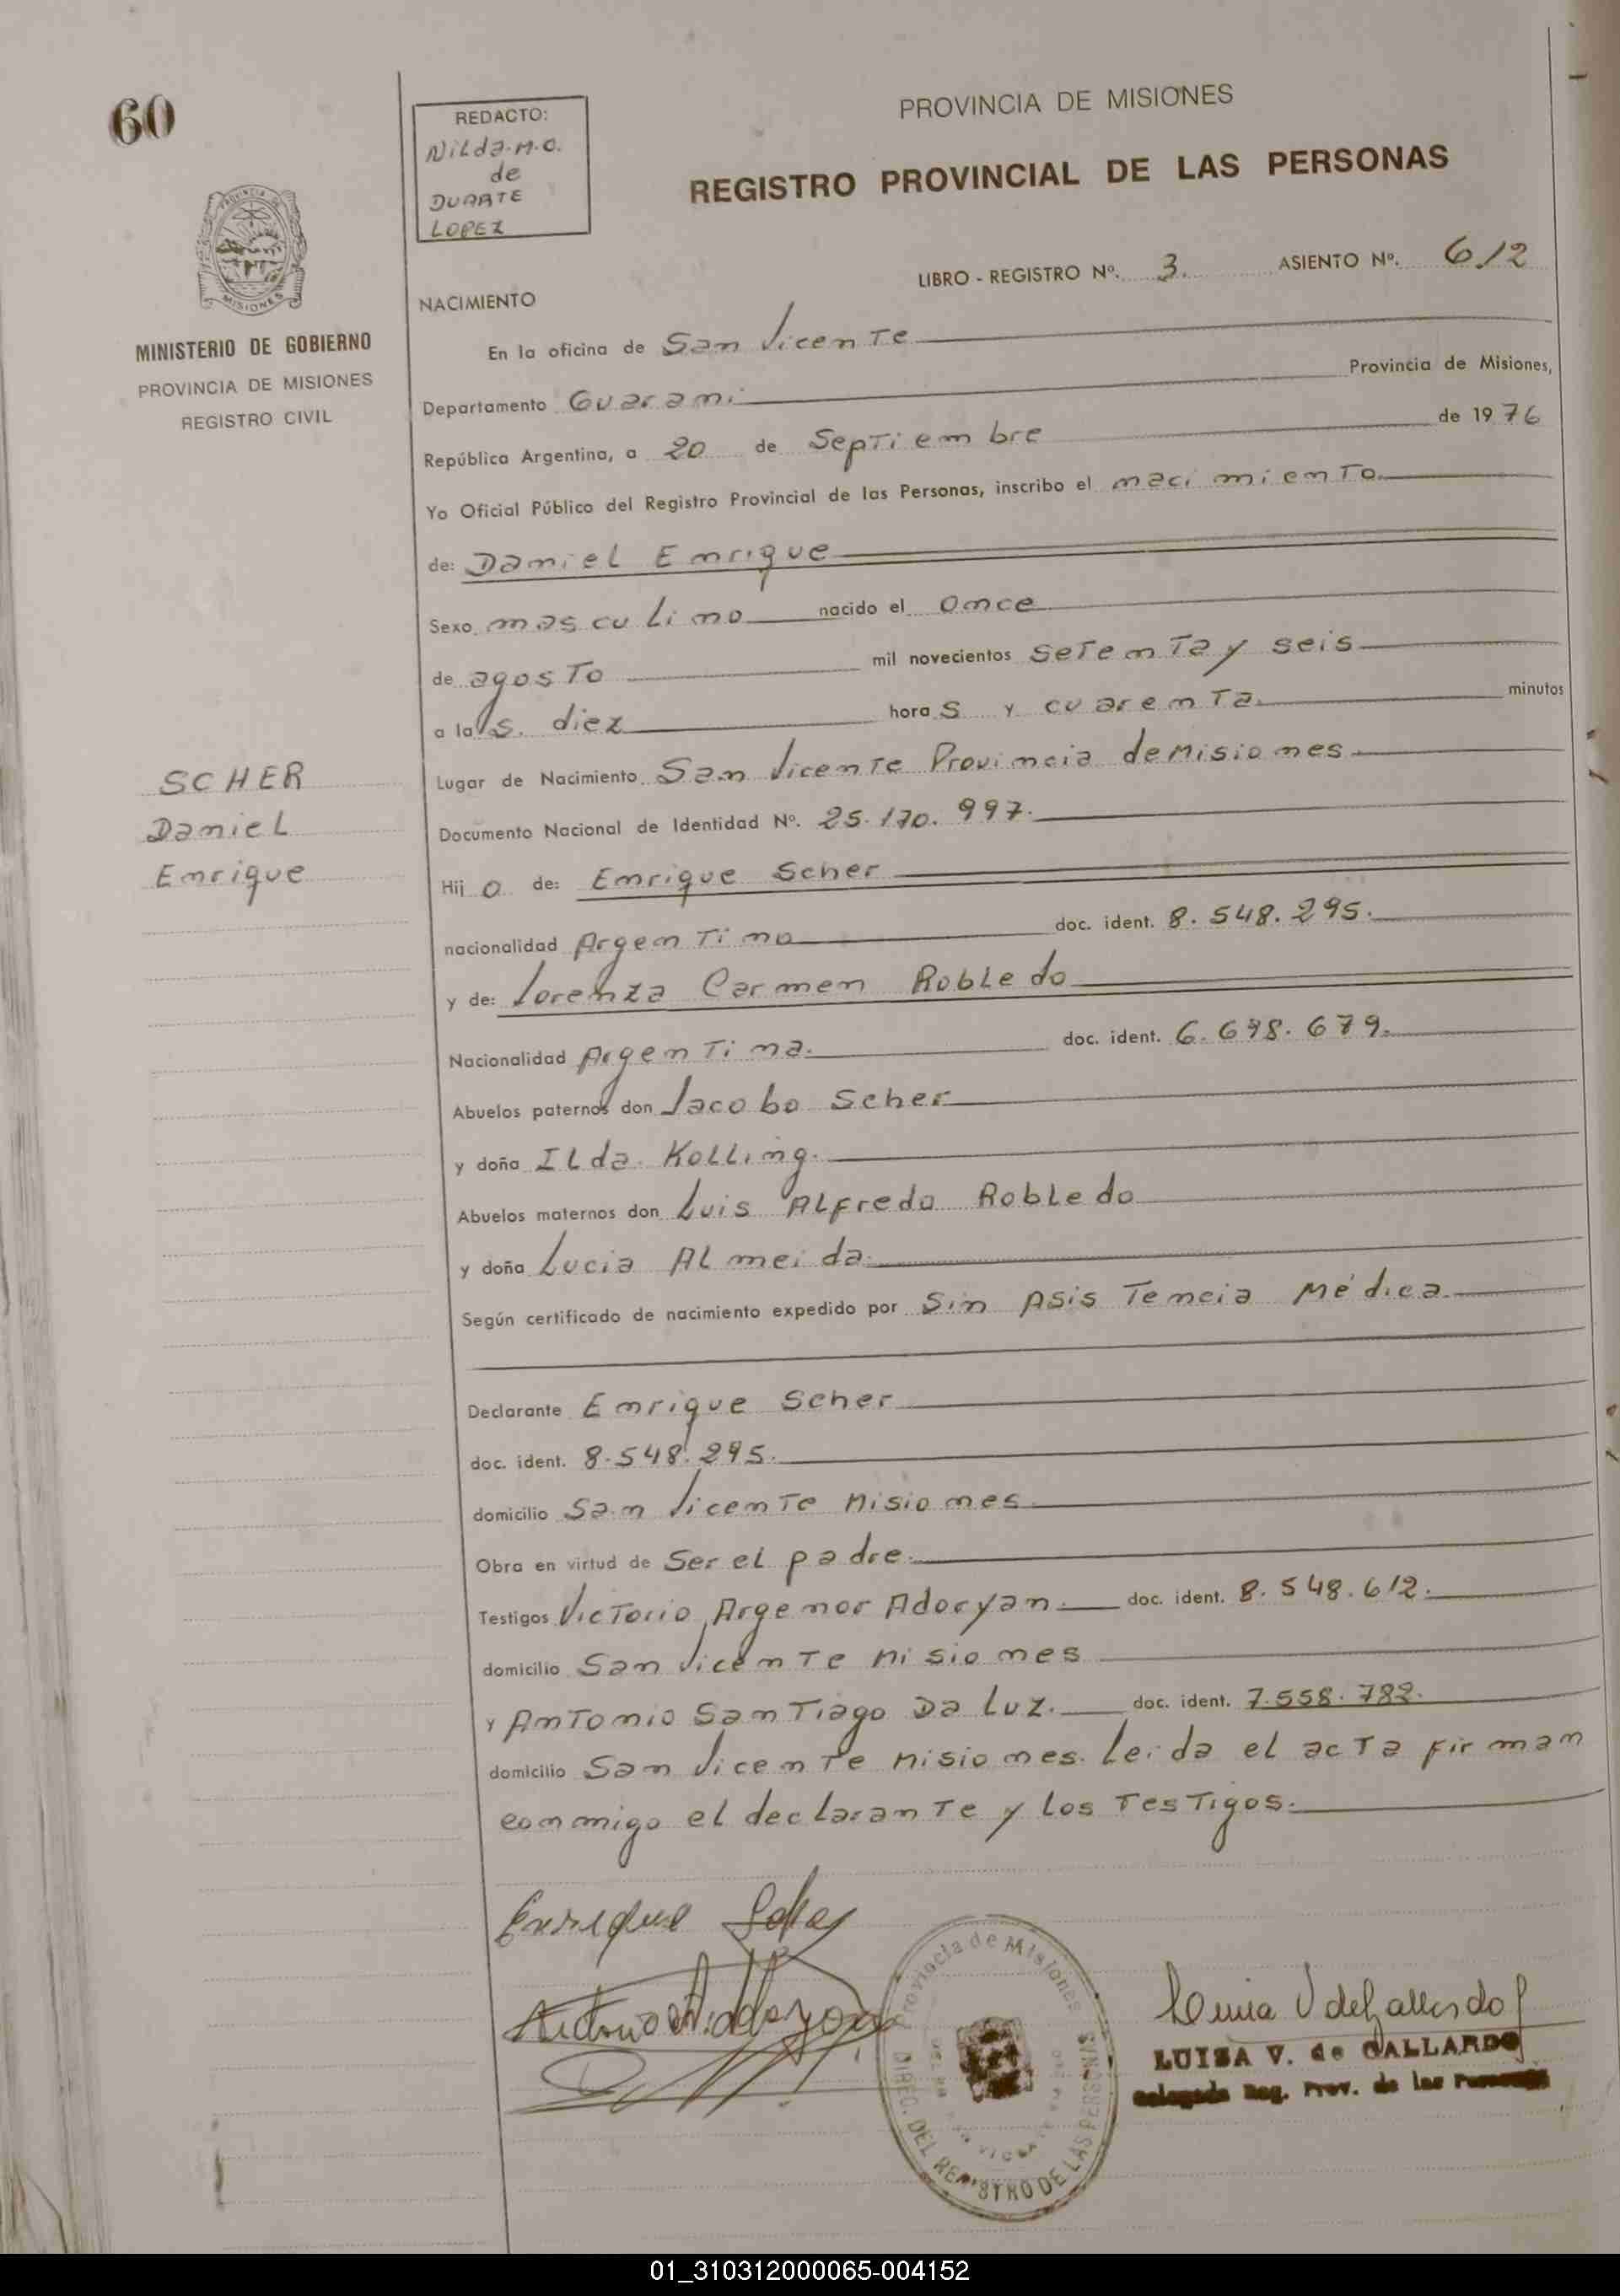 60
REDACTO:
Nilda.M.O.
de
DUARTE
LOPEZ
PROVINCIA DE MISIONES
REGISTRO PROVINCIAL DE LAS PERSONAS
LIBRO - REGISTRO Nº. 3. ASIENTO Nº. 612
NACIMIENTO
MISIONES
MINISTERIO DE GOBIERNO
PROVINCIA DE MISIONES
REGISTRO CIVIL
En la oficina de San Vicente
Departamento Guarani Provincia de Misiones,
República Argentina, a 20 de Septiembre de 1976
Yo Oficial Público del Registro Provincial de las Personas, inscribo el nacimiento
de: Daniel Enrique
Sexo masculino nacido el once
de agosto mil novecientos setenta y seis
a las. diez horas y cuarenta. minutos
SCHER
Daniel
Enrique
Lugar de Nacimiento San Vicente Provincia de Misiones
Documento Nacional de Identidad Nº. 25.170.997.
Hijo de: Enrique Scher
nacionalidad Argentino doc. ident. 8.548.295.
y de: Lorenza Carmen Robledo
Nacionalidad Argentina. doc. ident.
Abuelos paternos don Jacobo Scher
y doña Ilda Kolling.
Abuelos maternos don Luis Alfredo Robledo
y doña Lucia Almeida.
Según certificado de nacimiento expedido por Sin Asistencia Médica
Declarante Enrique Scher
doc. ident. 8.548.295.
domicilio San Vicente Misiones
Obra en virtud de Ser el padre.
Testigos Victorio Argenor Adoryan. doc. ident. 8.548.612.
domicilio San Vicente Misiones
y Antonio Santiago Da Luz. doc. ident. 7.558.782.
domicilio San Vicente Misiones. Leida el acta firman
conmigo el declarante y los testigos.
Enrique
Provincia de Misiones
DIREC. DEL REGISTRO DE LAS PERSONAS
LUISA V. de GALLARDO
Delegada Reg. Prov. de las Personas
01_310312000065-004152